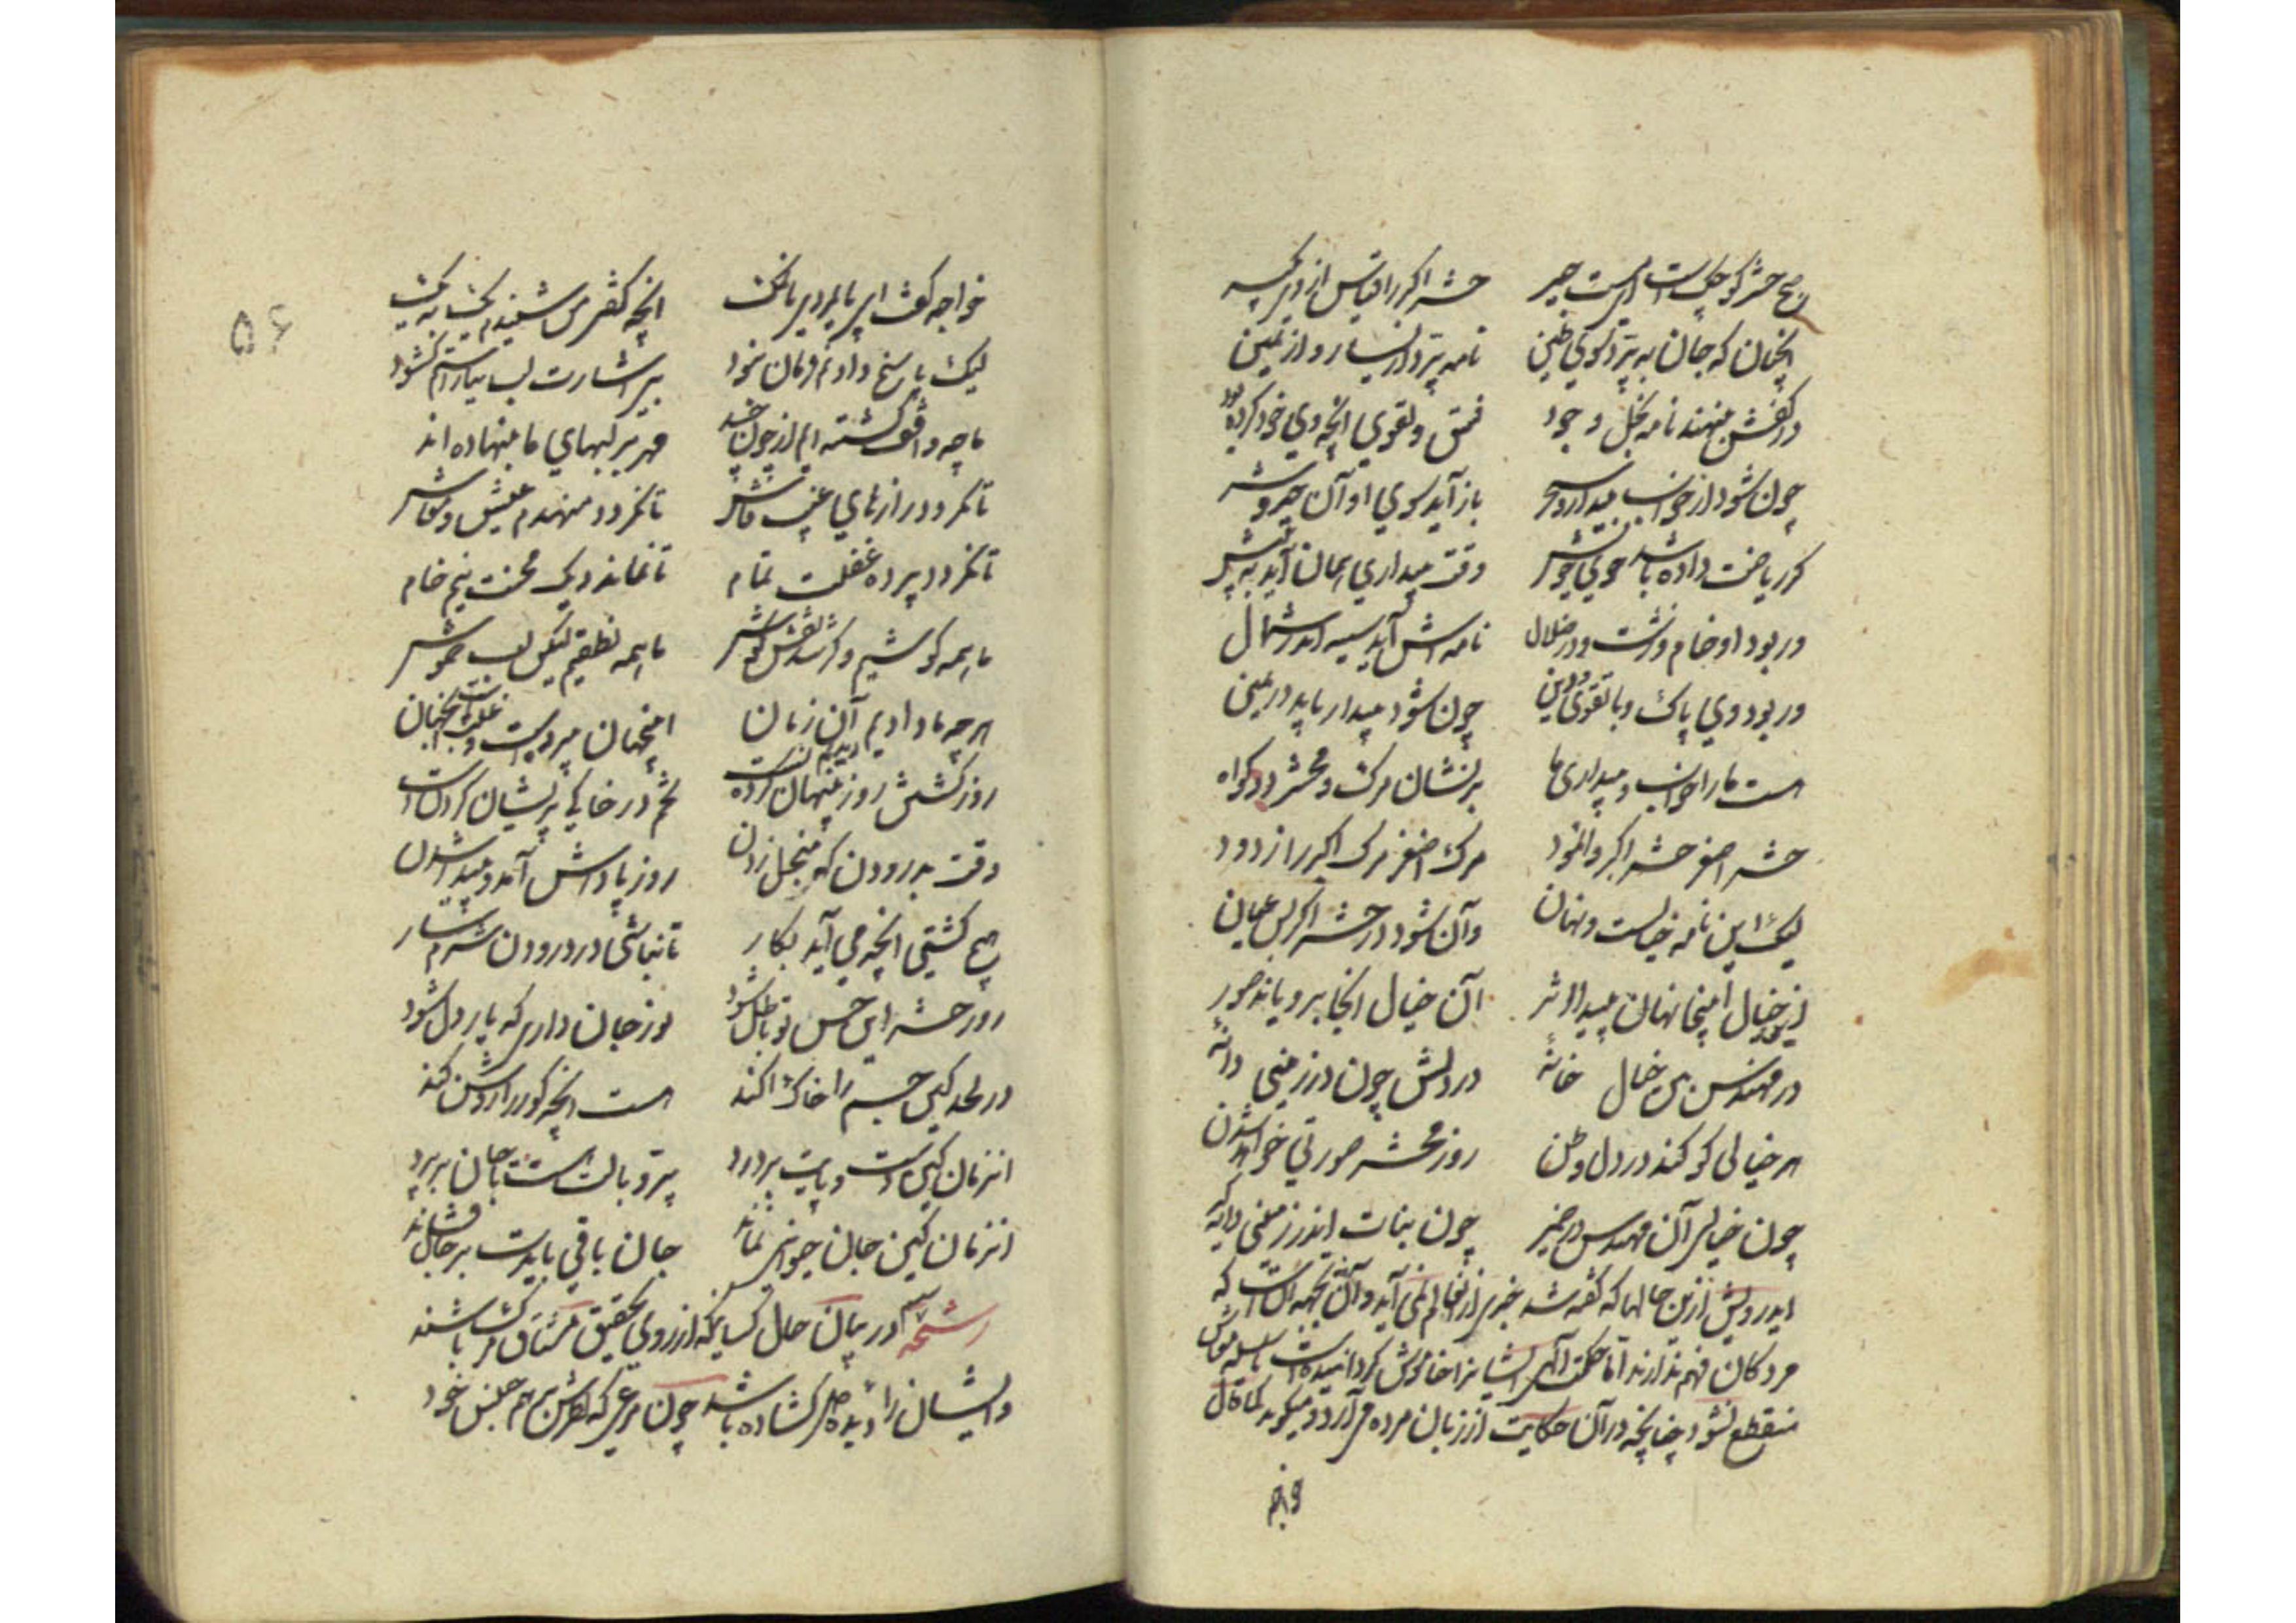 صبح حشر کوچکست ای مستجیر حشر اکبر را قیاس از وی بگیر
آنچنان که جان بپرد سوی طین نامه پرد از یسار و از یمین
در کفش بنهند نامه بخل و جود فسق و تقوی آنچه وی خو کرده بود
چون شود از خواب بیدار و سحر باز آید سوی او آن خیر و شر
گر ریاضت داده باشد خوی خویش وقت بیداری همان آید به پیش
ور بود او خام و زشت و در ضلال نامه‌اش آید سیه اندر شمال
ور بود وی پاک و با تقوی و دین چون شود بیدار یابد در یمین
هست ما را خواب و بیداری ما بر نشان مرگ و محشر دو گواه
حشر اصغر حشر اکبر وانمود مرگ اصغر مرگ اکبر را زدود
لیک این نامه خیالست و نهان وآن شود در حشر اکبر بس عیان
این خیال اینجا نهان پیدا اثر آن خیال آنجا برویاند صور
در مهندس بین خیال خانهٔ در دلش چون در زمینی دانهٔ
هر خیالی کو کند در دل وطن روز محشر صورتی خواهد شدن
چون خیال آن مهندس در ضمیر چون نبات اندر زمین دانه گیر
ایدرویش ازین حالها که گفته شد خبری از آن عالم نمی آید و آن بجهة آنست که
مردگان فهم ندارند اما حکمت الهی ایشانرا خاموش گردانیده است تا سلسله معاش
منقطع نشود چنانچه در آن حکایت از زبان مرده می‌آرد و میگوید کما قال
خواجه گفت این پایمرد با نمک آنچه گفتی من شنیدم یک بیک
لیک پاسخ دادنم فرمان نبود بی اشارت لب نیارستم گشود
ما چو واقف گشته‌ایم از چون و چند مهر بر لبهای ما بنهاده‌اند
تا نگردد رازهای غیب فاش تا نگردد منهدم عیش و معاش
تا نگردد پرده غفلت تمام تا نماند دیک محنت نیم خام
ما همه گوشیم و کر شد نقش گوش ما همه نطقیم لیکن لب خموش
هر چه ما دادیم دیدیم آن زمان اینجهان پرده است و غیبست آنجهان
روز کشتن روز پنهان کردنست تخم در خاکی پریشان کردنست
وقت بدرودن گه منجل زدن روز پاداش آمد و پیدا شدن
هیچ کشتی آنچه می‌آید بکار تا نباشی در درودن شرمسار
روز حشر این حس تو باطل شود نور جان داری که یار دل شود
در لحد کین چشم را خاک آکند هست آنچه گور را روشن کند
آنزمان کین دست و پایت بردرد پر و بالت هست تا جان برپرد
آنزمان کین جان حیوانی نماند جان باقی بایدت بر جا نشاند
رشحه سیم در بیان حال کسانیکه از روی تحقیق مشتاق مرگ باشند
و ایشان را دیده دل گشاده باشد چون مرغی که از قفس مرغان هم جنس خود
۵۶